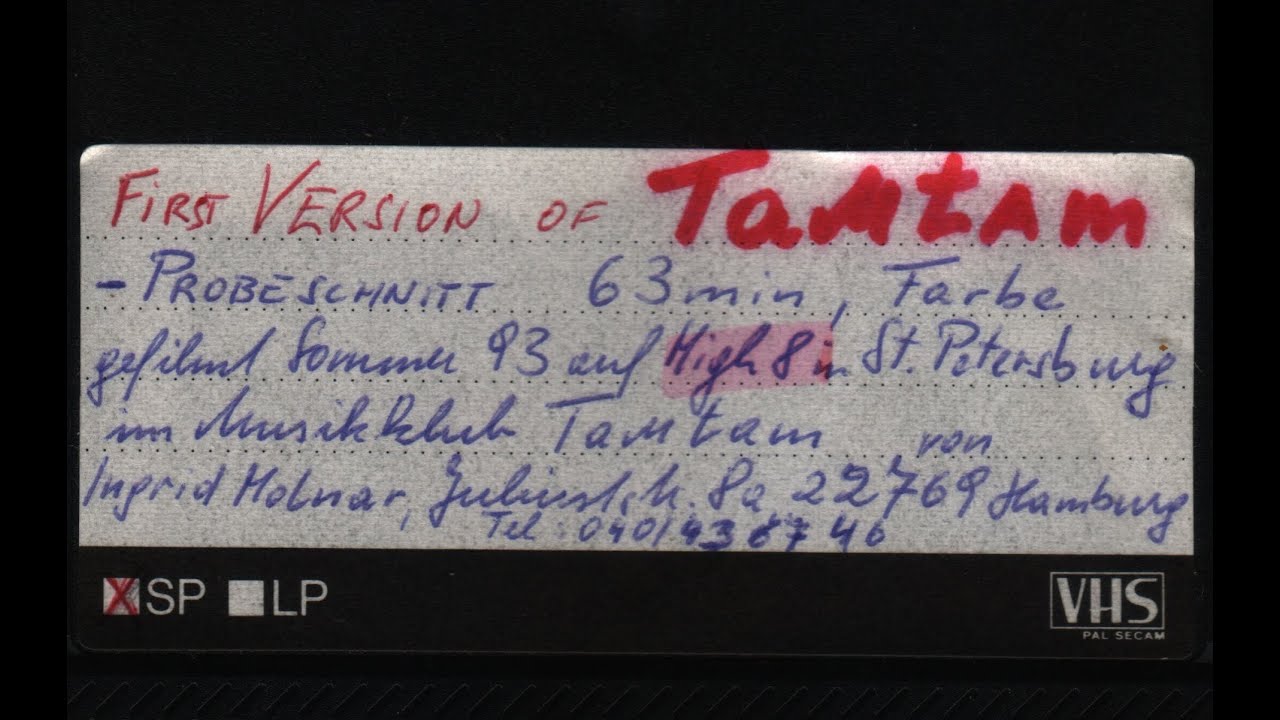 FIRST VERSION OF TaMtAm
- PROBESCHNITT 63 min, Farbe
gefilmt Sommer 93 auf High 8 in St. Petersburg
im Musikklub TaMtam von
Ingrid Molnar, Juliusstr. 8a 22769 Hamburg
Tel: 040/
X SP LP
VHS
PAL SECAM